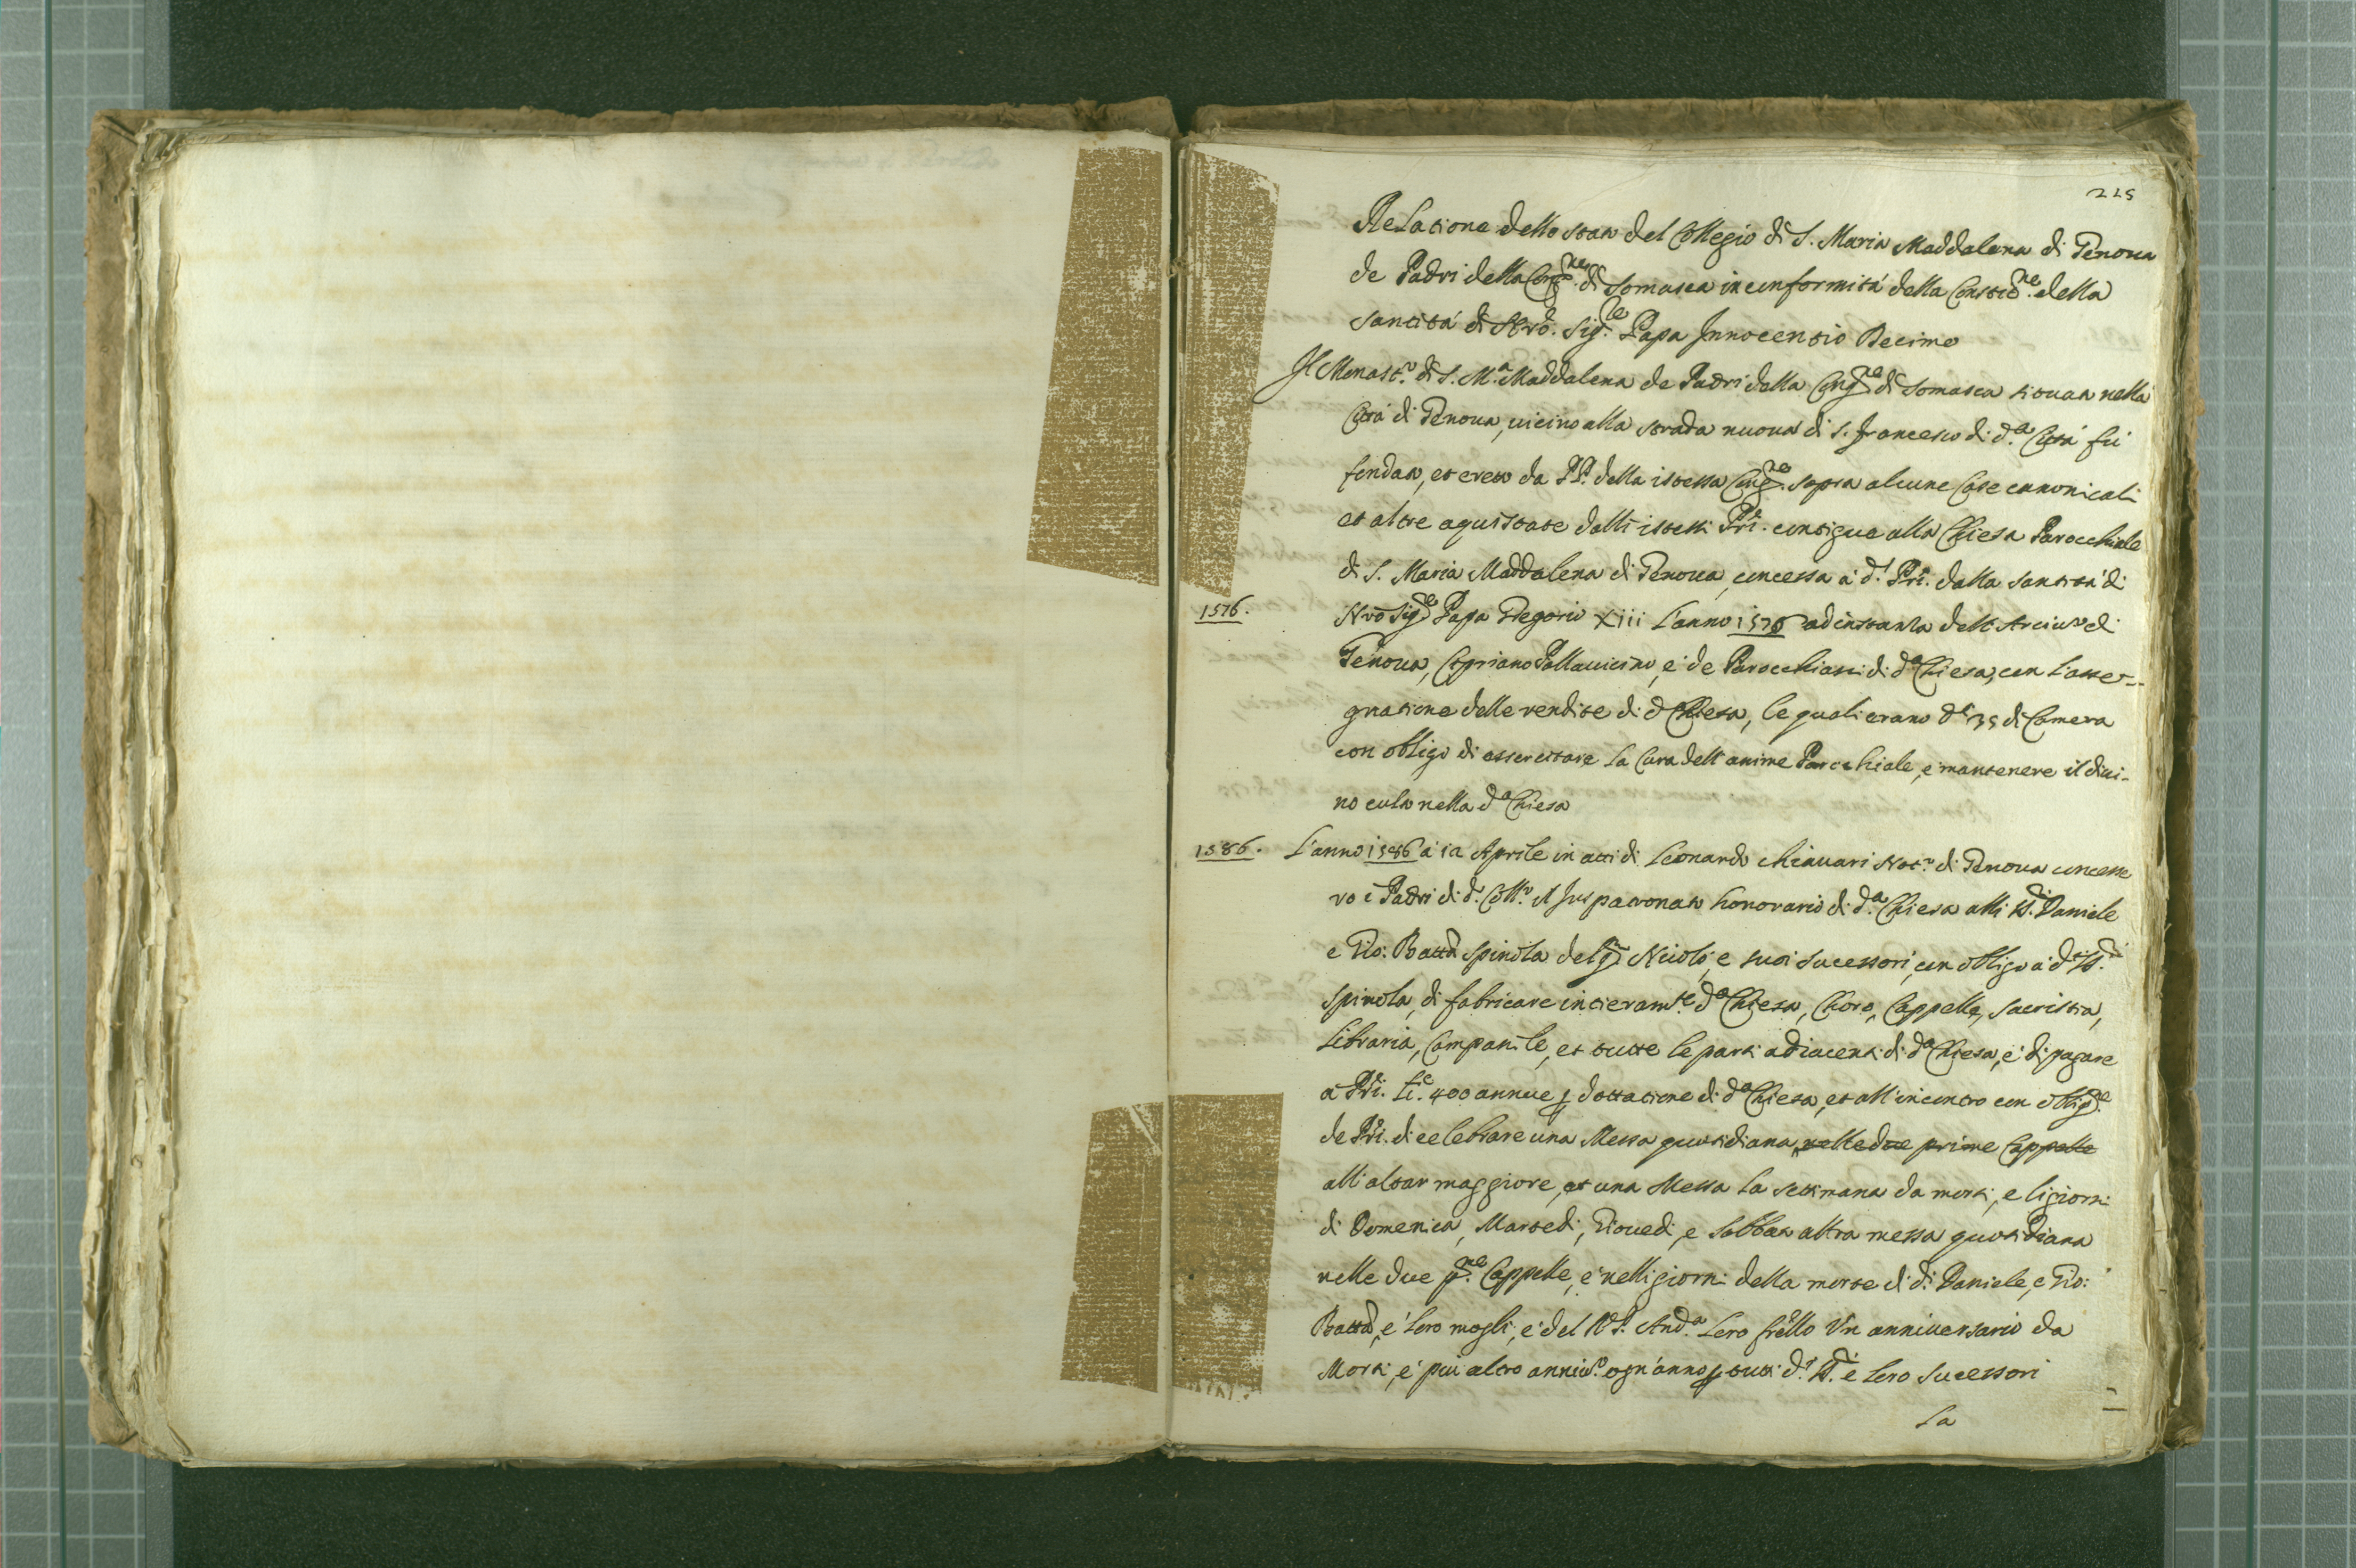 225
Relatione dello stato del Collegio di S. Maria Maddalena di Genoua
de Padri della Congne. di Somasca in conformità della Constione. della
santità di Nrõ. Sigre. Papa Innocentio Decimo
Il Monasto. di S. Ma. Maddalena de Padri della Congne di Somasca situato nella
Città di Genoua, uicino alla strada nuoua di S. Francesco di da. Città fù
fondato, et eretto da PP. della istessa Congne. sopra alcune Case canonicali
et altre aquistate dalli istessi Pri. contigue alla Chiesa Parocchiale
di S. Maria Maddalena di Genoua, concessa à di. Pri. dalla santità di
1576.
Nrõ Sigre Papa Gregorio Xiii L'anno 1576 ad instanza dell'Arciuo di
Genoua, Cipriano Pallauicino, e de Parocchiani di da Chiesa, con l'asse-
gnatione delle rendite di da Chiesa, le quali erano di 35 di Camera
con obligo di essercitare la Cura dell'anime Parochiale, e mantenere il diui-
no culto nella da Chiesa
1586.
L'anno 1586 à 12 Aprile in atti di Leonardo chiauari Noto. di Genoua concesse
ro i Padri di do. Collo. il Juspatronato honorario di da. Chiesa alli SS.ri Daniele
e Gio: Batta Spinola del q. Nicolò, e suoi sucessori, con obligo à di SS.ri
Spinola, di fabricare intieramte. da Chiesa, Choro, Cappelle, sacristia,
Libraria, Campanile, et tutte le parti adiacenti di da Chiesa, e di pagare
à Pri. Lie. 400 annue p dottatione di da Chiesa, et all'incontro con obligne.
de Pri. di celebrare una Messa quotidiana, nelle due prime Cappelle
all'altar maggiore, et una Messa la settimana da morti, e li giorni
di Domenica, Martedi, Giouedi, e Sabbato altra messa quotidiana
nelle due pme. Cappelle, e nelli giorni della morte di di. Daniele, e Gio:
Batta, e loro mogli, e del Rdo. P. Anda. loro frello Vn anniuersario da
Morti, e più altro anniuo. ogn'anno p tutti di. SS.ri e loro Sucessori
La